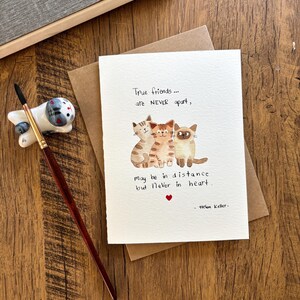 True friends...
are NEVER apart,
may be in distance
but Never in heart.
- Helen Keller -